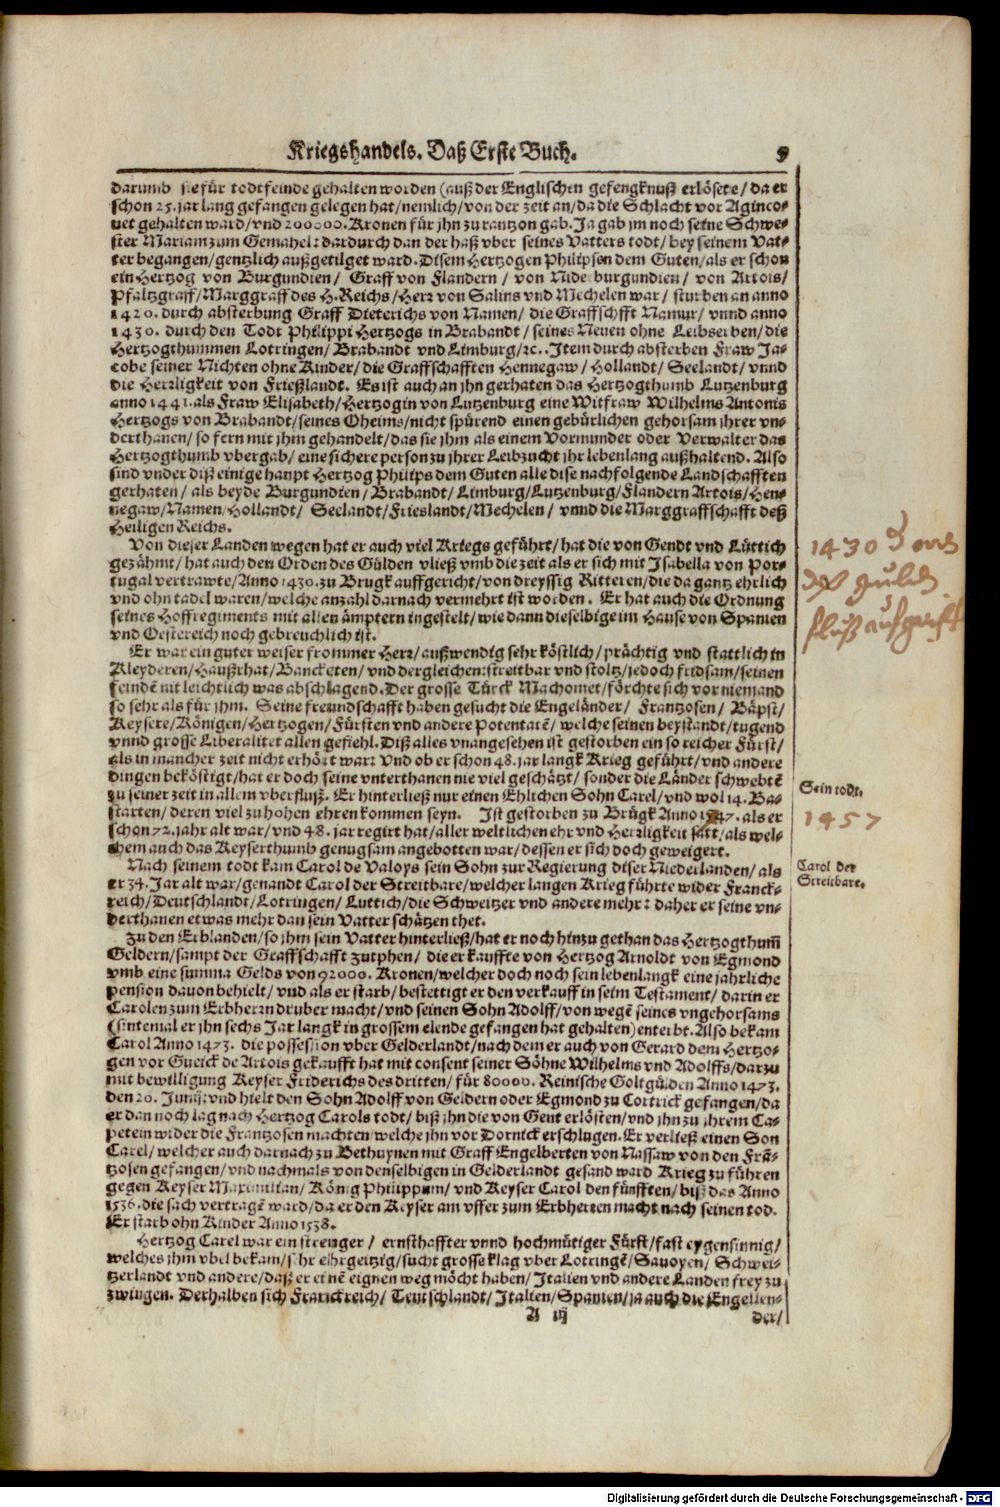 Kriegshandels. Daß Erste Buch. 5
darumb sie für todtfeinde gehalten worden (auß der Englischen gefengknuß erlösete / da er
schon 25. jar lang gefangen gelegen hat / nemlich / von der zeit an / da die Schlacht vor Aginco-
uet gehalten ward / vnd 200000. Kronen für jhn zu rantzon gab. Ja gab jm noch seine Schwe-
ster Mariam zum Gemahel: dardurch dan der haß vber seines Vatters todt / bey seinem Vat-
ter begangen / gentzlich außgetilget ward. Disem Hertzogen Philipsen dem Guten / als er schon
ein Hertzog von Burgundien / Graff von Flandern / von Nideburgundien / von Artois /
Pfaltzgraff / Marggraff des H. Reichs / Herr von Salins vnd Mechelen war / sturben an anno
1420. durch absterbung Graff Dieterichs von Namen / die Graffschafft Namur / vnnd anno
1430. durch den Todt Philippi Hertzogs in Brabandt / seines Neuen ohne Leibserben / die
Hertzogthummen Lotringen / Brabandt vnd Limburg / ꝛc.. Item durch absterben Fraw Ja-
cobe seiner Nichten ohne Kinder / die Graffschafften Hennegaw / Hollandt / Seelandt / vnnd
die Herrligkeit von Frießlandt. Es ist auch an jhn gerhaten das Hertzogthumb Lutzenburg
anno 1441. als Fraw Elisabeth / Hertzogin von Lutzenburg eine Witfraw Wilhelms Antonis
Hertzogs von Brabandt / seines Oheims / nicht spürend einen gebürlichen gehorsam jhrer vn-
derthanen / so fern mit jhm gehandelt / das sie jhm als einem Vormunder oder Verwalter das
Hertzogthumb vbergab / eine sichere person zu jhrer Leibzucht jhr lebenlang außhaltend. Also
sind vnder diß einige haupt Hertzog Philips dem Guten alle dise nachfolgende Landschafften
gerhaten / als beyde Burgundien / Brabandt / Limburg / Lutzenburg / Flandern Artois / Hen-
negaw / Namen / Hollandt / Seelandt / Frieslandt / Mechelen / vnnd die Marggraffschafft deß
Heiligen Reichs.
Von dieser Landen wegen hat er auch viel Kriegs geführt / hat die von Gendt vnd Lüttich
gezähmt / hat auch den Orden des Gülden vließ vmb die zeit als er sich mit Isabella von Por-
tugal vertrawte / Anno 1430. zu Brugk auffgericht / von dreyssig Ritteren / die da gantz ehrlich
vnd ohn tadel waren / welche anzahl darnach vermehrt ist worden. Er hat auch die Ordnung
seines Hoffregiments mit allen ämptern ingestelt / wie dann dieselbige im Hause von Spanien
vnd Oestereich noch gebreuchlich ist.
Er war ein guter weiser frommer Herr / außwendig sehr köstlich / prächtig vnd stattlich in
Kleyderen / Haußrhat / Bancketen / vnd dergleichen: streitbar vnd stoltz / jedoch fridsam / seinen
feindē nit leichtlich was abschlagend. Der grosse Türck Machomet / förchte sich vor niemand
so sehr als für jhm. Seine freundschafft haben gesucht die Engeländer / Frantzosen / Bäpst /
Keysere / Königen / Hertzogen / Fürsten vnd andere Potentatē / welche seinen beystandt / tugend
vnnd grosse Liberalitet allen gefiehl. Diß alles vnangesehen ist gestorben ein so reicher Fürst /
als in mancher zeit nicht erhört war: Vnd ob er schon 48. jar langk Krieg geführt / vnd andere
dingen beköstigt / hat er doch seine vnterthanen nie viel geschätzt / sonder die Länder schwebtē
zu seiner zeit in allem vberfluß. Er hinterließ nur einen Ehlichen Sohn Carel / vnd wol 14. Ba-
starten / deren viel zu hohen ehren kommen seyn. Ist gestorben zu Brügk Anno 1 47. als er
schon 72. jahr alt war / vnd 48. jar regirt hat / aller weltlichen ehr vnd Herrligkeit satt / als wel-
chem auch das Keyserthumb genugsam angebotten war / dessen er sich doch geweigert.
Nach seinem todt kam Carol de Valoys sein Sohn zur Regierung diser Niederlanden / als
er 34. Jar alt war / genandt Carol der Streitbare / welcher langen Krieg führte wider Franck-
reich / Deutschlandt / Lotringen / Luttich / die Schweitzer vnd andere mehr: daher er seine vn-
derthanen etwas mehr dan sein Vatter schätzen thet.
Zu den Erblanden / so jhm sein Vatter hinterließ / hat er noch hinzu gethan das Hertzogthum̄
Geldern / sampt der Graffschafft Zutphen / die er kauffte von Hertzog Arnoldt von Egmond
vmb eine summa Gelds von 92000. Kronen / welcher doch noch sein lebenlangk eine jahrliche
pension dauon behielt / vnd als er starb / bestettigt er den verkauff in seim Testament / darin er
Carolen zum Erbherrn druber macht / vnd seinen Sohn Adolff / von wegē seines vngehorsams
(sintemal er jhn sechs Jar langk in grossem elende gefangen hat gehalten) enterbt. Also bekam
Carol Anno 1473. die possession vber Gelderlandt / nach dem er auch von Gerard dem Hertzo-
gen vor Gueick de Artois gekaufft hat mit consent seiner Söhne Wilhelms vnd Adolffs / darzu
mit bewilligung Keyser Friderichs des dritten / für 80000. Reinische Goltgülden Anno 1473.
den 20. Junij: vnd hielt den Sohn Adolff von Geldern oder Egmond zu Cortrick gefangen / da
er dan noch lag nach Hertzog Carols todt / biß jhn die von Gent erlösten / vnd jhn zu jhrem Ca-
petein wider die Frantzosen machten / welche jhn vor Dornick erschlugen. Er verließ einen Son
Carel / welcher auch darnach zu Bethuynen mit Graff Engelberten von Nassaw von den Frā-
tzosen gefangen / vnd nachmals von denselbigen in Gelderlandt gesand ward Krieg zu führen
gegen Keyser Maximilian / König Philippum / vnd Keyser Carol den fünfften / biß das Anno
1536. die sach vertragē ward / da er den Keyser am vffer zum Erbherren macht nach seinen tod.
Er starb ohn Kinder Anno 1538.
Hertzog Carel war ein strenger / ernsthaffter vnnd hochmütiger Fürst / fast eygensinnig /
welches jhm vbel bekam / sehr ehrgeitzig / sucht grosse klag vber Lotringē / Sauoyen / Schwei-
tzerlandt vnd andere / daß er einē eignen weg möcht haben / Italien vnd andere Landen frey zu
zwingen. Derhalben sich Franckreich / Teutschlandt / Italien / Spanien / ja auch die Engellen-
A iij der /
1430
deß gulden
fluß aufgericht
Sein todt.
1457
Carol der
Streitbare.
Digitalisierung gefördert durch die Deutsche Forschungsgemeinschaft - DFG